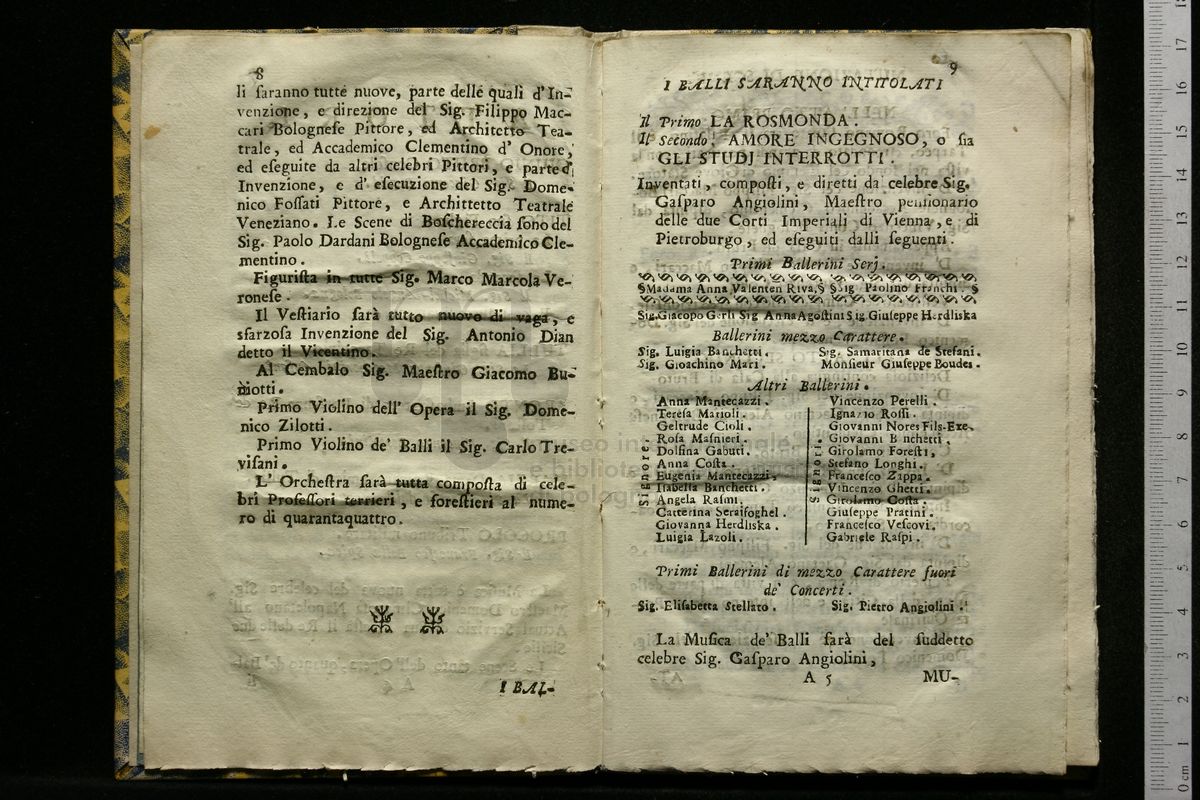 8
li ſaranno tutte nuove, parte delle quali d'In-
venzione, e direzione del Sig. Filippo Mac-
cari Bologneſe Pittore, ed Architetto Tea-
trale, ed Accademico Clementino d' Onore,
ed eſeguite da altri celebri Pittori, e parte d'
Invenzione, e d' eſecuzione del Sig. Dome-
nico Foſſati Pittore, e Archittetto Teatrale
Veneziano. Le Scene di Boſchereccia ſono del
Sig. Paolo Dardani Bologneſe Accademico Cle-
mentino.
Figuriſta in tutte Sig. Marco Marcola Ve-
roneſe.
Il Veſtiario ſarà tutto nuovo di vaga, e
sfarzoſa Invenzione del Sig. Antonio Dian
detto il Vicentino.
Al Cembalo Sig. Maeſtro Giacomo Bu-
miotti.
Primo Violino dell' Opera il Sig. Dome-
nico Zilotti.
Primo Violino de' Balli il Sig. Carlo Tre-
viſani.
L' Orcheſtra ſarà tutta compoſta di cele-
bri Profeſſori terrieri, e foreſtieri al nume-
ro di quarantaquattro.
I BAL-
9
I BALLI SARANNO INTITOLATI
Il Primo LA ROSMONDA.
Il Secondo. AMORE INGEGNOSO, o ſia
GLI STUDJ INTERROTTI.
Inventati, compoſti, e diretti da celebre Sig.
Gaſparo Angiolini, Maeſtro penſionario
delle due Corti Imperiali di Vienna, e di
Pietroburgo, ed eſeguiti dalli ſeguenti.
Primi Ballerini Serj.
§Madama Anna Valenten Riva,§ §Sig. Paolino Franchi. §
Sig. Giacopo Gerli Sig Anna Agoſtini Sig. Giuſeppe Herdliska
Ballerini mezzo Carattere.
Sig. Luigia Banchetti. Sig. Samaritana de Stefani.
Sig. Gioachino Mari. Monſieur Giuſeppe Boudes.
Altri Ballerini.
Signore.
Anna Mantecazzi.
Tereſa Marioli.
Geltrude Cioli.
Roſa Maſnieri.
Dolfina Gabuti.
Anna Coſta.
Eugenia Mantecazzi,
Iſabella Banchetti.
Angela Raſmi.
Catterina Seraifoghel.
Giovanna Herdliska.
Luigia Lazoli.
Signori.
Vincenzo Perelli.
Ignazio Roſſi.
Giovanni Nores Fils-Exe.
Giovanni Banchetti.
Girolamo Foreſti,
Stefano Longhi.
Franceſco Zappa.
Vincenzo Ghetti.
Girolamo Coſta.
Giuſeppe Pratini.
Franceſco Veſcovi.
Gabriele Raſpi.
Primi Ballerini di mezzo Carattere fuori
de' Concerti.
Sig. Eliſabetta Stellato. Sig. Pietro Angiolini.
La Muſica de' Balli ſarà del ſuddetto
celebre Sig. Gaſparo Angiolini,
A 5 MU-